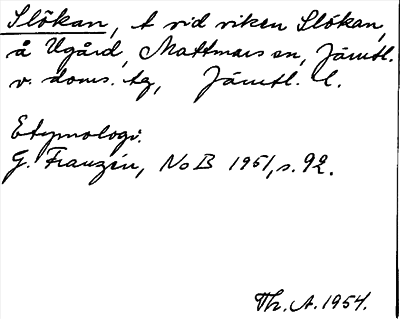 Slökan, t vid viken Slökan,
å Ugård, Mattmars sn, Jämtl.
v. doms. tg, Jämtl. l.
Etymologi:
G. Franzén, NoB 1951, s. 92.
Th. A. 1954.